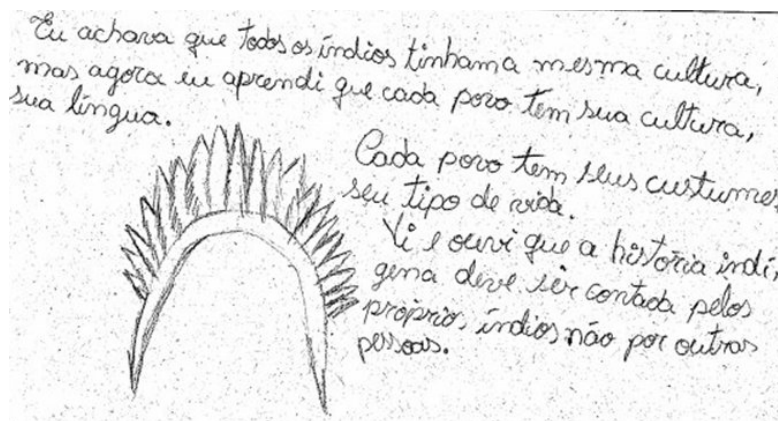 Eu achava que todos os índios tinham a mesma cultura,
mas agora eu aprendi que cada povo tem sua cultura,
sua língua.
Cada povo tem seus custumes
seu tipo de vida.
Vi e ouvi que a história indí-
gena deve ser contada pelos
próprios índios não por outras
pessoas.